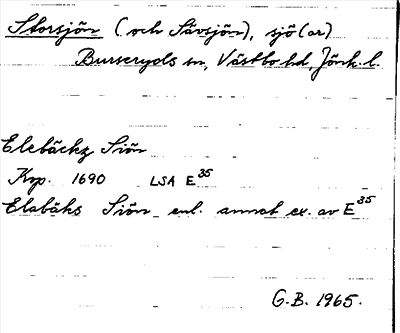 Storsjön (och Sävsjön), sjö(ar)
Burseryds sn, Västbo hd, Jönk. l.
Elebäckz Siön
Kop. 1690 LSA E35
Elabäks Siön enl. annat ex. av E35
G.B. 1965.